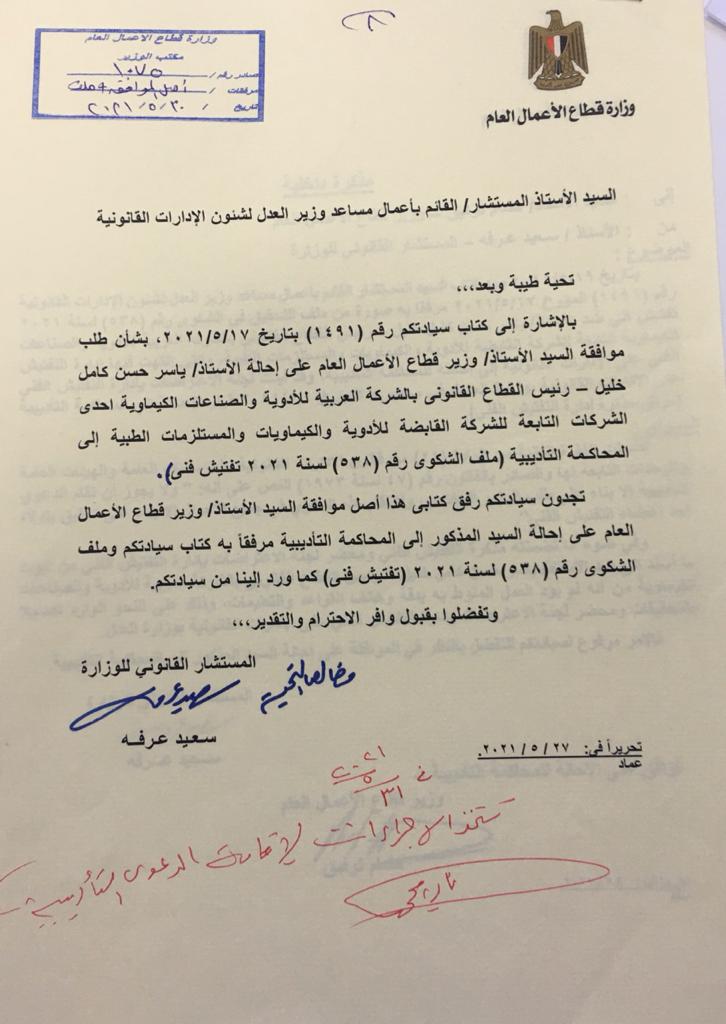 ٨
وزارة قطاع الأعمال العام
مكتب الوزير
صادر رقم / ١٠٧٥
مرفقات / أصل الموافقة + ملف
تاريخ / ٢٠٢١/٥/٣٠
وزارة قطاع الأعمال العام
السيد الأستاذ المستشار/ القائم بأعمال مساعد وزير العدل لشئون الإدارات القانونية
تحية طيبة وبعد،،،
بالإشارة إلى كتاب سيادتكم رقم (١٤٩١) بتاريخ ٢٠٢١/٥/١٧، بشأن طلب
موافقة السيد الأستاذ/ وزير قطاع الأعمال العام على إحالة الأستاذ/ ياسر حسن كامل
خليل – رئيس القطاع القانونى بالشركة العربية للأدوية والصناعات الكيماوية احدى
الشركات التابعة للشركة القابضة للأدوية والكيماويات والمستلزمات الطبية إلى
المحاكمة التأديبية (ملف الشكوى رقم (٥٣٨) لسنة ٢٠٢١ تفتيش فنى).
تجدون سيادتكم رفق كتابى هذا أصل موافقة السيد الأستاذ/ وزير قطاع الأعمال
العام على إحالة السيد المذكور إلى المحاكمة التأديبية مرفقاً به كتاب سيادتكم وملف
الشكوى رقم (٥٣٨) لسنة ٢٠٢١ (تفتيش فنى) كما ورد إلينا من سيادتكم.
وتفضلوا بقبول وافر الاحترام والتقدير،،،
المستشار القانوني للوزارة
مع خالص التحية
سعيد عرفه
تحريراً فى: ٢٠٢١/٥/٢٧.
عماد
تتخذ الاجراءات لإقامة الدعوى التأديبية